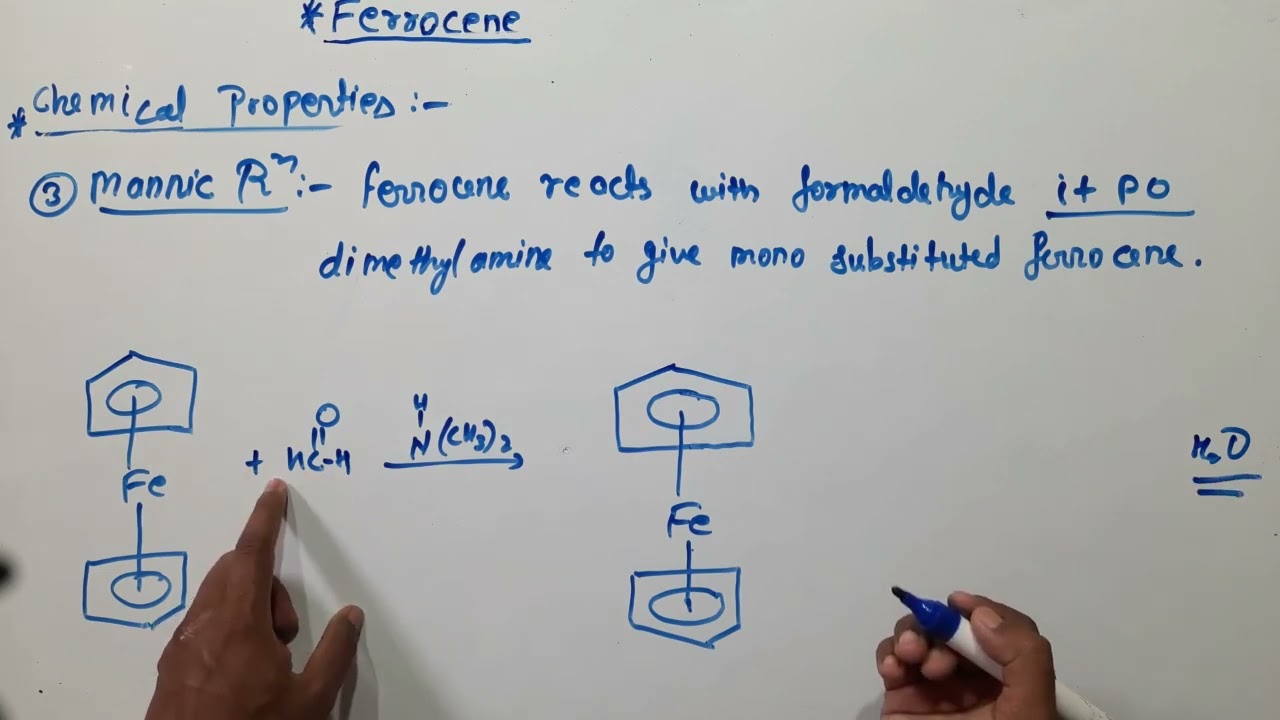 * Ferrocene
* Chemical Properties :-
③ Mannic Rⁿ :- ferrocene reacts with formaldehyde it po
dimethyl amine to give mono substituted ferrocene.
O
H
+ HC-H
N(CH3)2
H2O
Fe
Fe